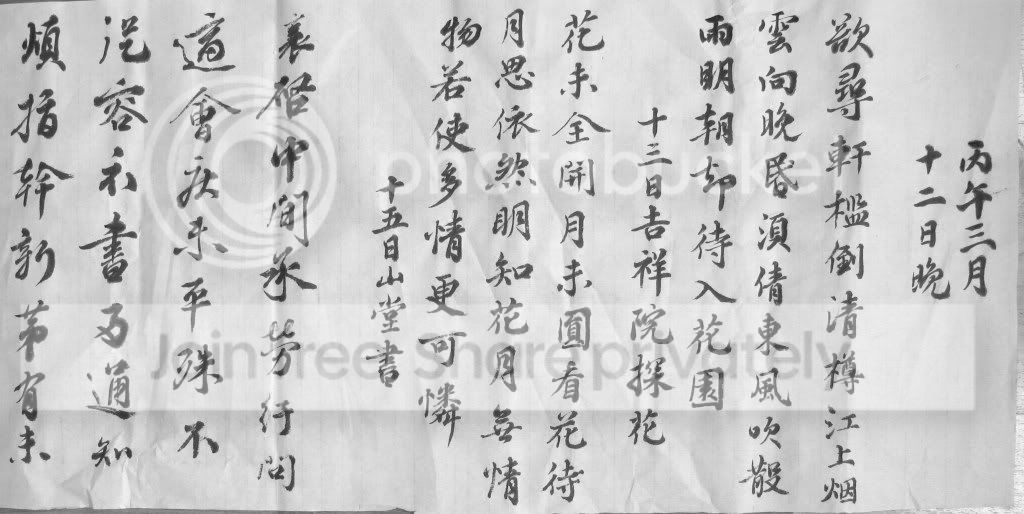 丙午三月
十二日晚
欲尋軒檻倒清樽江上烟
雲向晚昏須倩東風吹散
雨明朝却待入花園
十三日吉祥院探花
花未全開月未圓看花待
月思依然明知花月無情
物若使多情更可憐
十五日山堂書
襄啓中間承勞行問
適會疾未平殊不
從容示書通知
煩指幹新第有未
photobucket
Join free. Share privately.